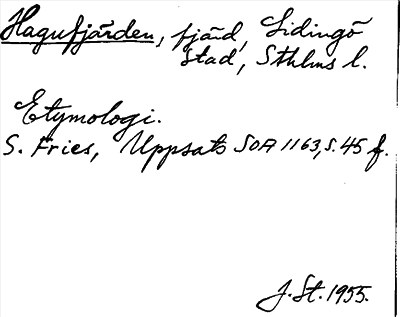 Hagufjärden, fjärd, Lidingö
stad, Sthlms l.
Etymologi.
S. Fries, Uppsats SOA 1163, s. 45 f.
J. St. 1955.